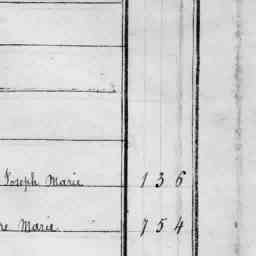 Joseph Marie 1 3 6
re Marie 7 5 4